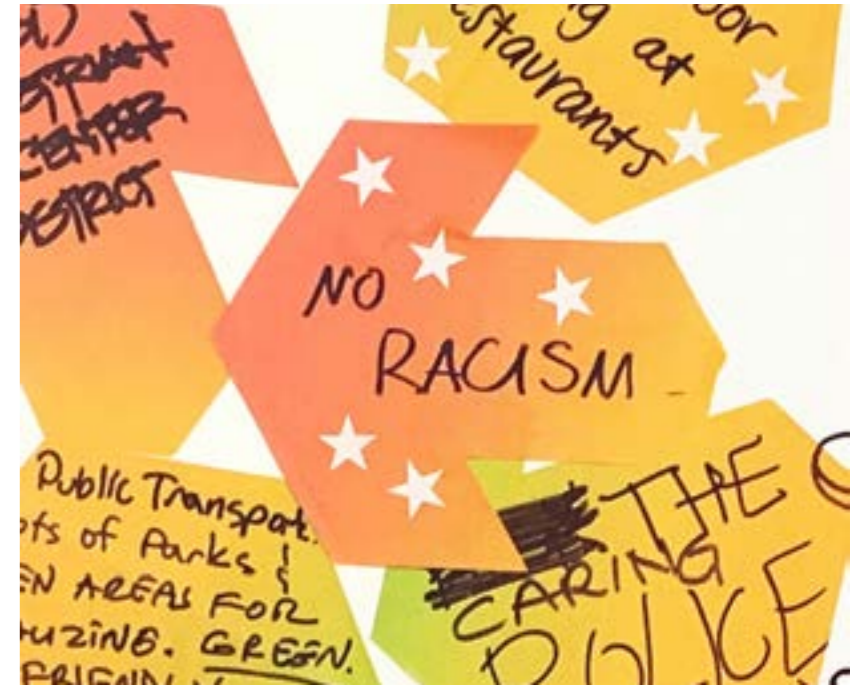 CENTER
g at
staurants
NO
RACISM
Public Transport.
ots of Parks &
EN AREAS FOR
GREEN.
FRIENDLY
THE
CARING
POLICE